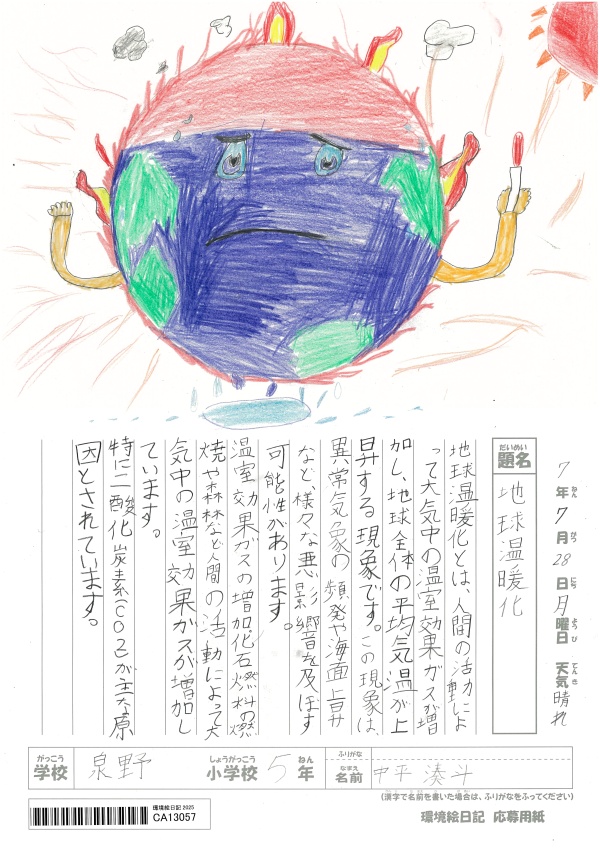 7年7月28日月曜日 天気晴れ
ねん がつ にち ようび てんき
だいめい
題名 地球温暖化
地球温暖化とは、人間の活動によ
って大気中の温室効果ガスが増
加し、地球全体の平均気温が上
昇する現象です。この現象は
異常気象の頻発や海面上昇
など、様々な悪影響を及ぼす
可能性があります。
温室効果ガスの増加化石燃料の燃
焼や森林など人間の活動によって大
気中の温室効果ガスが増加し
ています。
特に二酸化炭素(CO2)が主な原
因とされています。
がっこう しょうがっこう ねん ふりがな
学校 泉野 小学校 5年 なまえ 名前 中平 湊斗
(漢字で名前を書いた場合は、ふりがなをふってください)
環境絵日記 応募用紙
環境絵日記 2025
CA13057